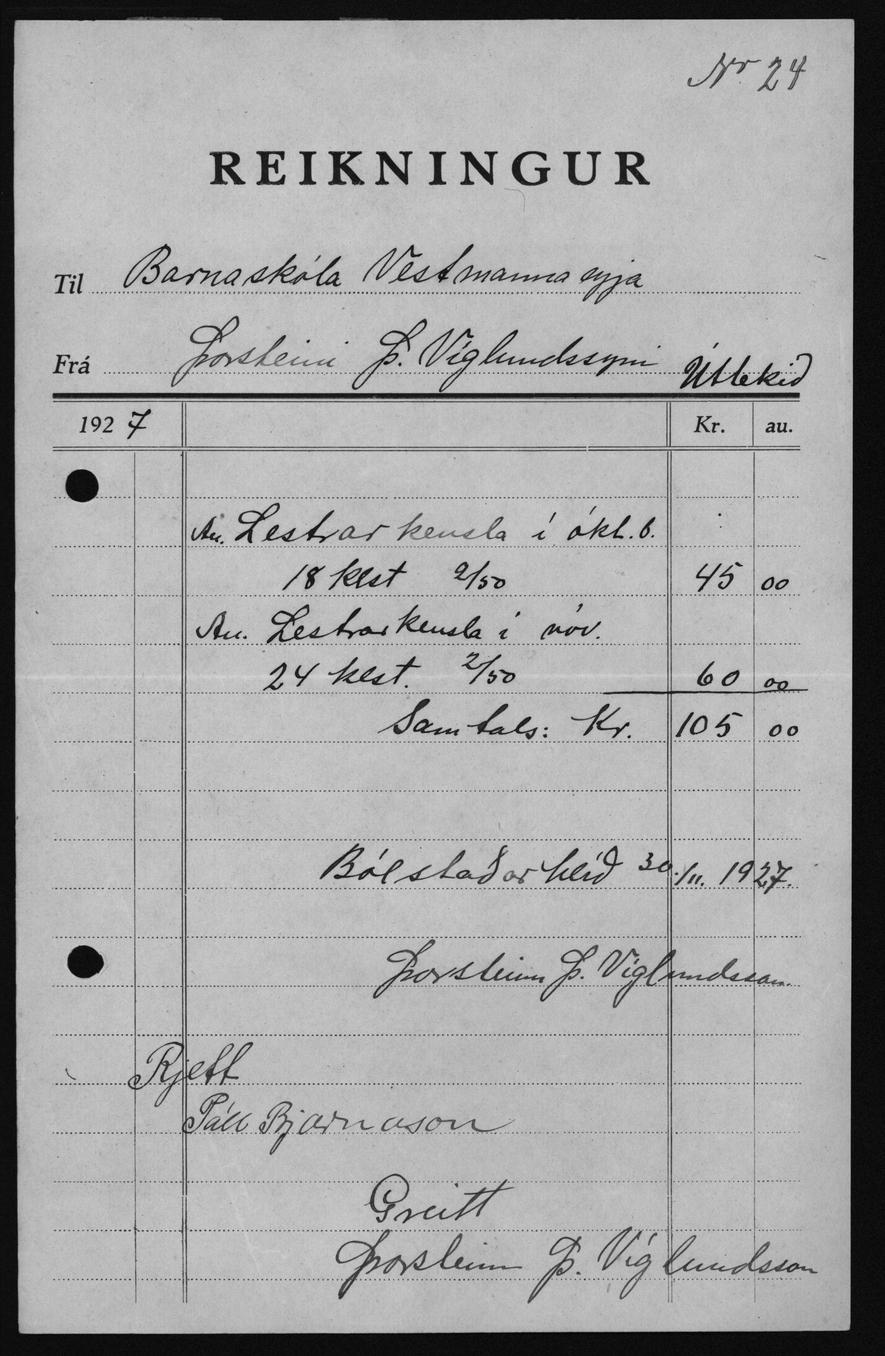 Nr 24
REIKNINGUR
Til Barnaskóla Vestmannaeyja
Frá Þorsteini Þ. Víglundssyni Úttekið
1927 Kr. au.
An. Lestrarkensla í okt.b.
18 klst 2/50 45 00
An. Lestrarkensla í nóv.
24 klst. 2/50 60 00
Samtals: Kr. 105 00
Bólstaðarhlíð 30./11. 1927.
Þorsteinn Þ. Víglundsson.
Rjett
Páll Bjarnason
Greitt
Þorsteinn Þ. Víglundsson